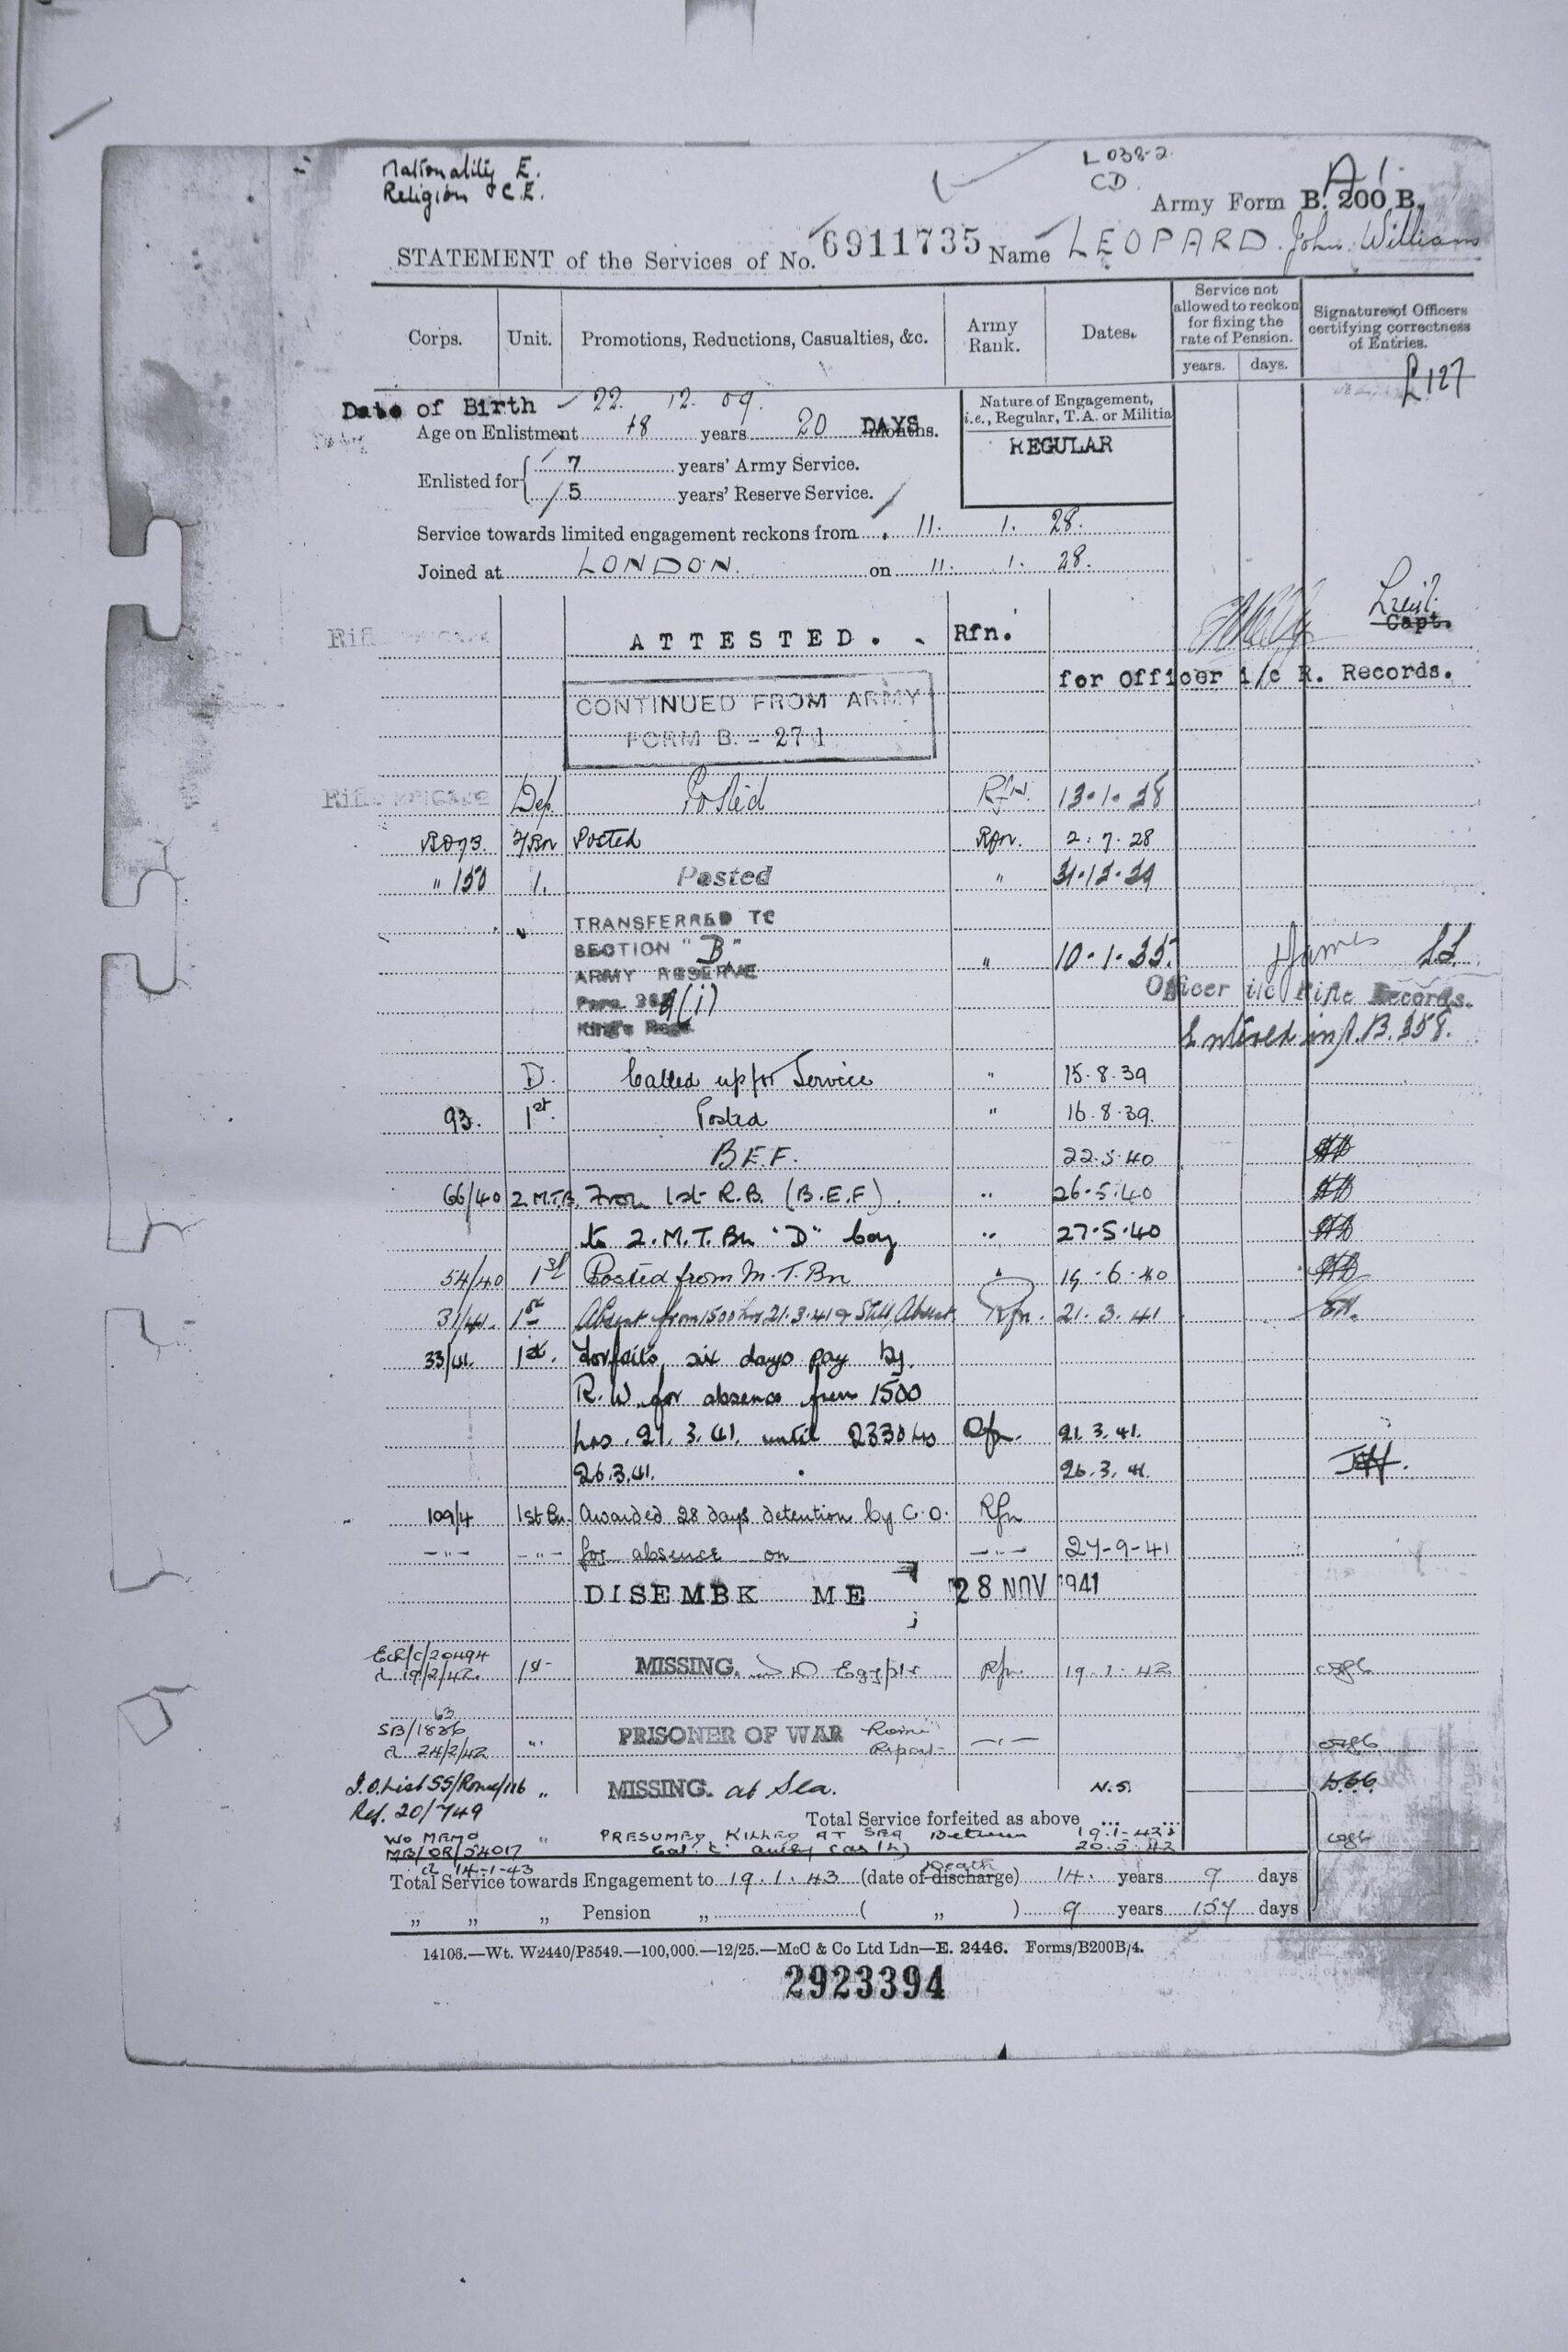 Nationality E.
Religion C.E.
L 038-2.
CD.
A 1.
Army Form B. 200 B.
STATEMENT of the Services of No. 6911735 Name LEOPARD. John William
Corps. Unit. Promotions, Reductions, Casualties, &c. Army Rank. Dates. Service not allowed to reckon for fixing the rate of Pension. years. days. Signature of Officers certifying correctness of Entries.
£127
Date of Birth 22. 12. 09.
Age on Enlistment 18 years 20 DAYS months.
Nature of Engagement, i.e., Regular, T.A. or Militia
REGULAR
Enlisted for 7 years' Army Service.
5 years' Reserve Service.
Service towards limited engagement reckons from 11. 1. 28.
Joined at LONDON. on 11. 1. 28.
ATTESTED. Rfn. Lieut. Capt.
for Officer i/c R. Records.
CONTINUED FROM ARMY
FORM B. - 271
Rifle BRIGADE Dep. Posted Rfn. 13.1.28
Posted Rfn. 2.7.28
" 150 1. Posted " 31.12.29
TRANSFERRED TO
SECTION "B"
ARMY RESERVE " 10.1.35.
Officer i/c Rifle Records.
King's Regs
Entered in A.B. 358.
D. Called up for Service " 15.8.39
93. 1st. Posted " 16.8.39.
B.E.F. 22.5.40
66/40 2 M.T.B. From 1st R.B. (B.E.F). " 26.5.40
to 2. M.T. Bn "D" Coy " 27.5.40
54/40 1st Posted from M.T. Bn " 19.6.40
31/41. 1st Absent from 1500 hrs 21.3.41 & Still Absent Rfn. 21.3.41
33/41. 1st. Forfeits six days pay by
R.W. for absence from 1500
hrs. 21.3.41. until 2330 hrs Rfn. 21.3.41.
26.3.41. 26.3.41.
109/4 1st Bn. Awarded 28 days detention by C.O. Rfn
-"- -"- for absence on -"- 27-9-41
DISEMBK ME 28 NOV 1941
Ech/c/20494
d 19/2/42. 1st MISSING. W D Egypt Rfn. 19.1.42
63
SB/1836
d 24/2/42 " PRISONER OF WAR Rome Report -"-
I.O. List 55/Rome/116 " MISSING. at Sea. N.S.
Ref. 20/749
Total Service forfeited as above ... ...
WO MEMO " PRESUMED KILLED AT SEA Between 19.1.42 &
MB/OR/54017 20.5.42
d 14-1-43
Total Service towards Engagement to 19.1.43 (date of discharge) Death 14. years 9 days
„ „ „ Pension „ ( „ ) 9 years 157 days
14106.—Wt. W2440/P3549.—100,000.—12/25.—McC & Co Ltd Ldn—E. 2446. Forms/B200B/4.
2923394